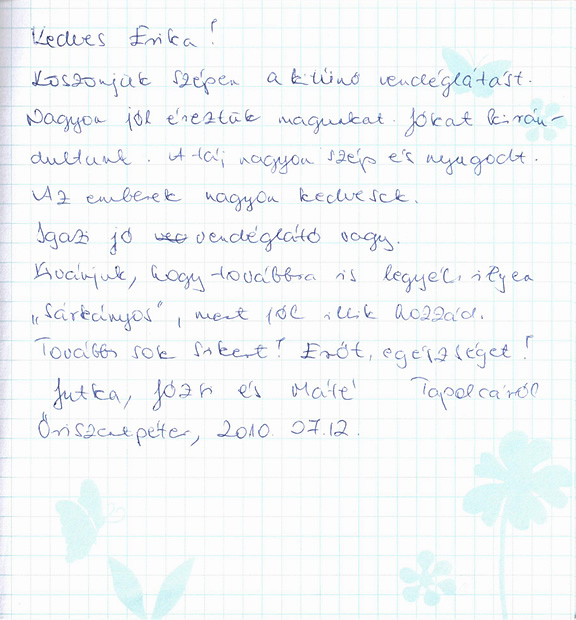 Kedves Erika!
Köszönjük szépen a kitűnő vendéglátást.
Nagyon jól éreztük magunkat. Jókat kirán-
dultunk. A táj nagyon szép és nyugodt.
Az emberek nagyon kedvesek.
Igazi jó vendéglátó vagy.
Kívánjuk, hogy továbbra is legyél ilyen
„Sárkányos", mert jól illik hozzád.
További sok sikert! Erőt, egészséget!
Jutka, Józsi és Máté Tapolcáról
Őriszentpéter, 2010. 07.12.